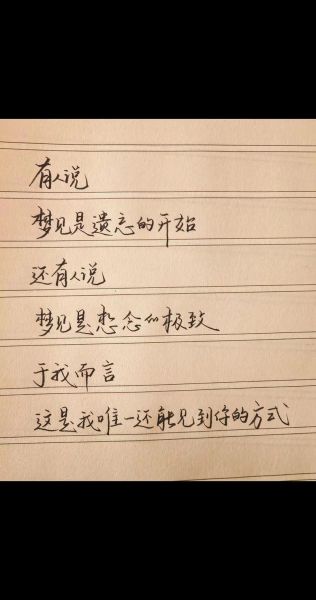 有人说
梦见是遗忘的开始
还有人说
梦见是想念的极致
于我而言
这是我唯一还能见到你的方式